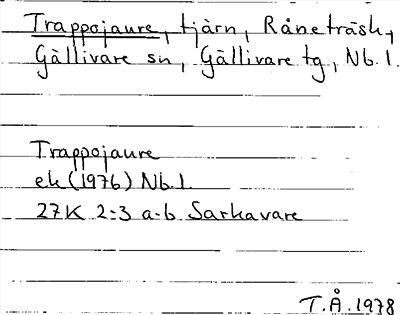 Trappojaure, tjärn, Råneträsk,
Gällivare sn, Gällivare tg, Nb. l.
Trappojaure
ek (1976) Nb. l.
27K 2:3 a-b Sarkavare
T.Å. 1978